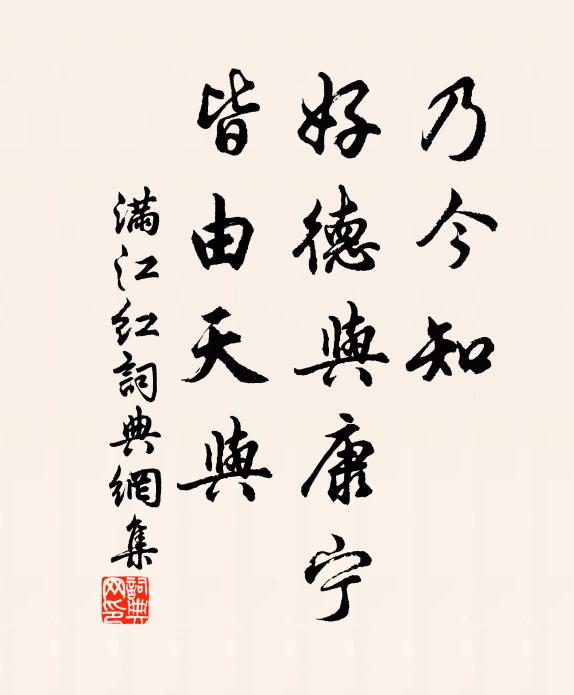 乃今知
好德與康宁
皆由天與
滿江红詞典網集
詞典网印